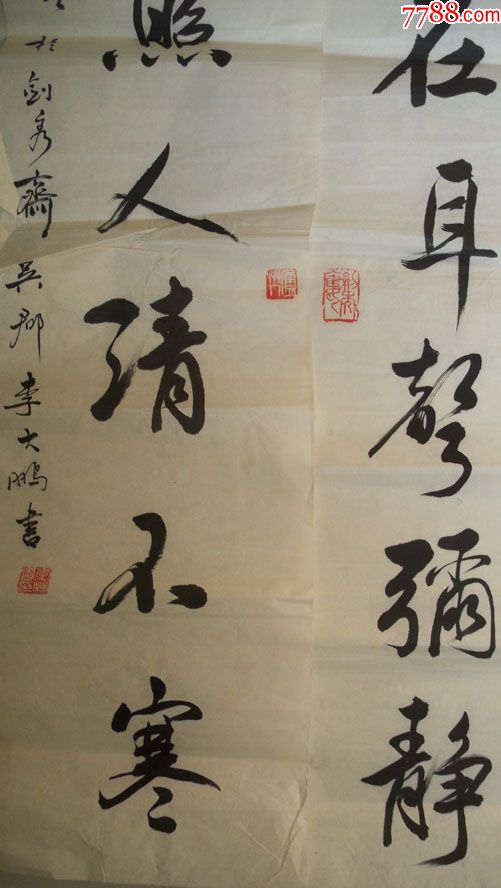 7788.com
在耳聲彌静
照人清不寒
於劍秀齋 吳郡 李大鵬書